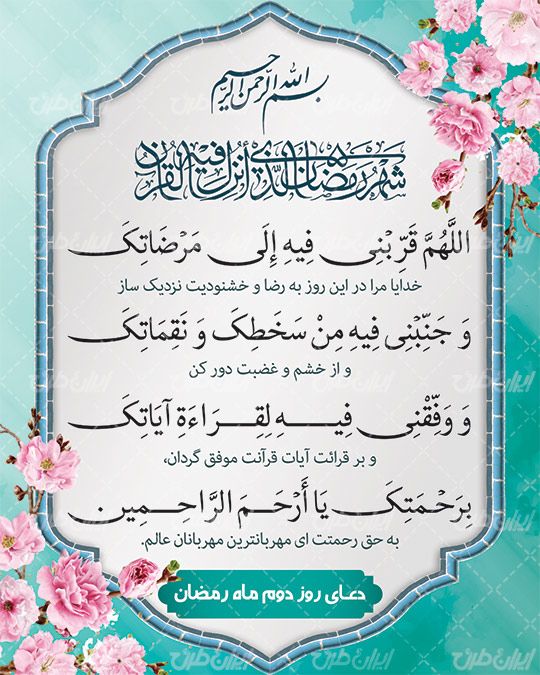 بسم الله الرحمن الرحیم
شَهرُ رَمَضانَ الَّذي أُنزِلَ فيهِ القُرآن
اللَّهُمَّ قَرِّبْنِی فِیهِ إِلَی مَرْضَاتِکَ
خدایا مرا در این روز به رضا و خشنودیت نزدیک ساز
وَ جَنِّبْنِی فِیهِ مِنْ سَخَطِکَ وَ نَقِمَاتِکَ
و از خشم و غضبت دور کن
وَ وَفِّقْنِی فِیهِ لِقِرَاءَةِ آیَاتِکَ
و بر قرائت آیات قرآنت موفق گردان،
بِرَحْمَتِکَ یَا أَرْحَمَ الرَّاحِمِین
به حق رحمتت ای مهربانترین مهربانان عالم.
دعای روز دوم ماه رمضان
ایران طرح